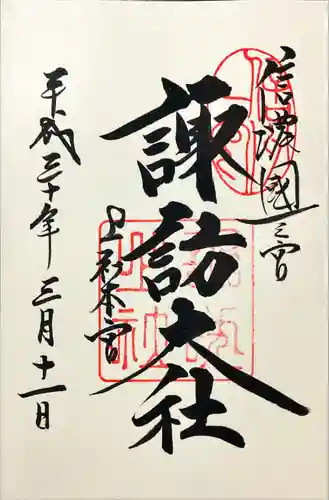 信濃國一之宮
諏訪大社
上社本宮
平成三十年三月十一日